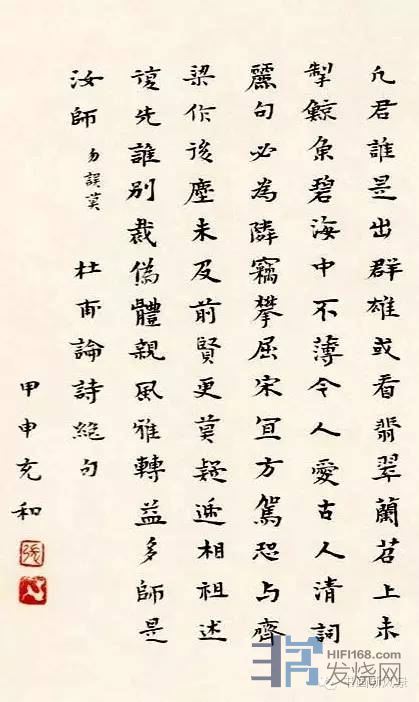 凡君誰是出群雄或看翡翠蘭苕上未
掣鯨魚碧海中不薄今人愛古人清詞
麗句必為隣竊攀屈宋宜方駕恐与齊
梁作後塵未及前賢更莫疑遞相祖述
復先誰別裁偽體親風雅轉益多師是
汝師 勿誤莫 杜甫論詩絕句
甲申充和
張
HIFI168.com
发烧网